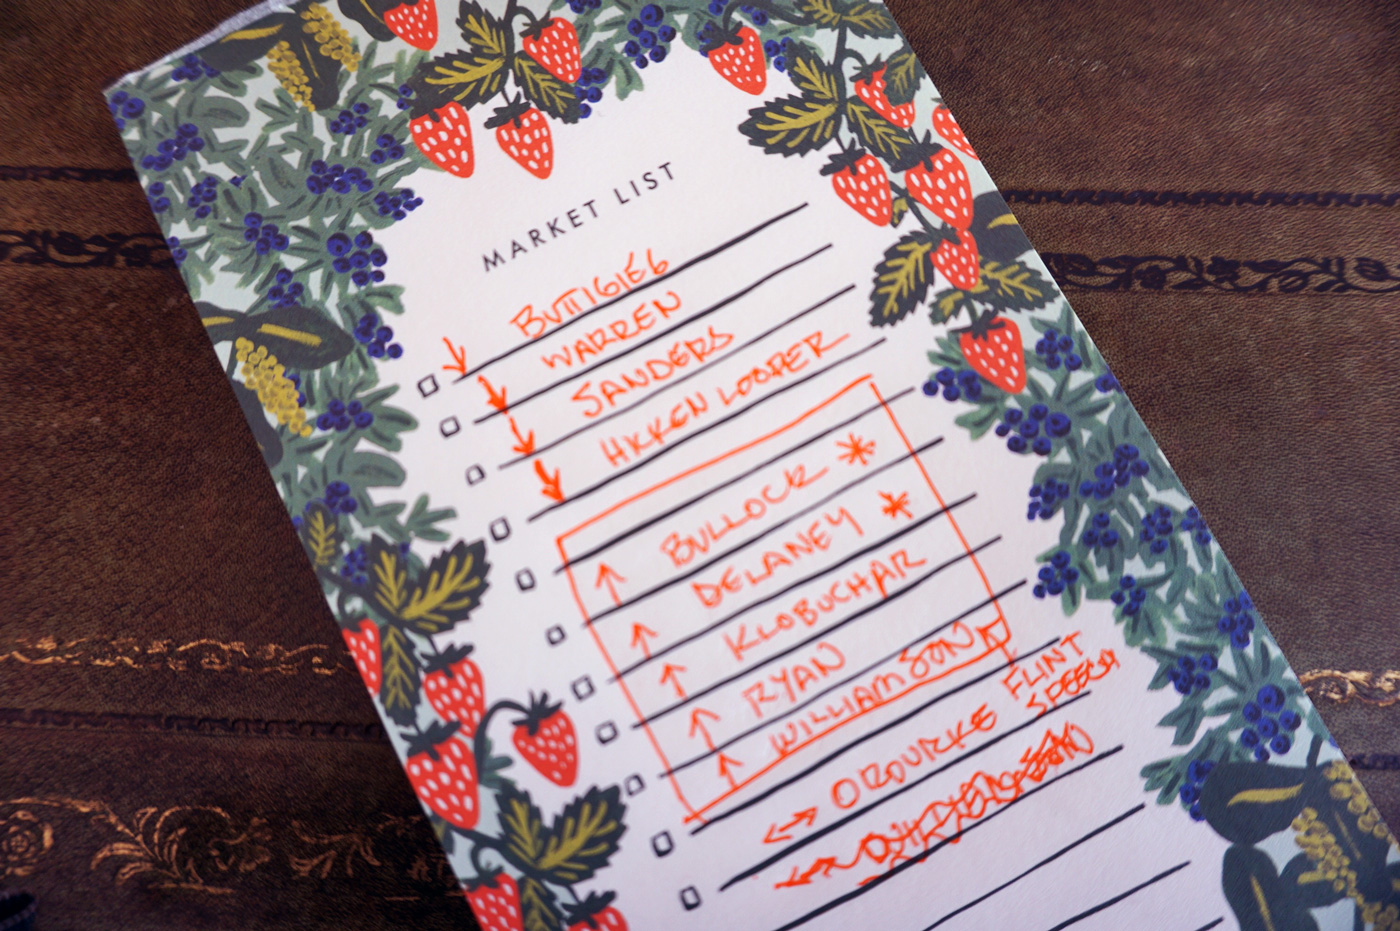 MARKET LIST
↓ BUTTIGIEG
↓ WARREN
↓ SANDERS
↓ HICKENLOOPER
↑ BULLOCK *
↑ DELANEY *
↑ KLOBUCHAR
↑ RYAN
↑ WILLIAMSON
FLINT
SPEECH
↔ OROURKE